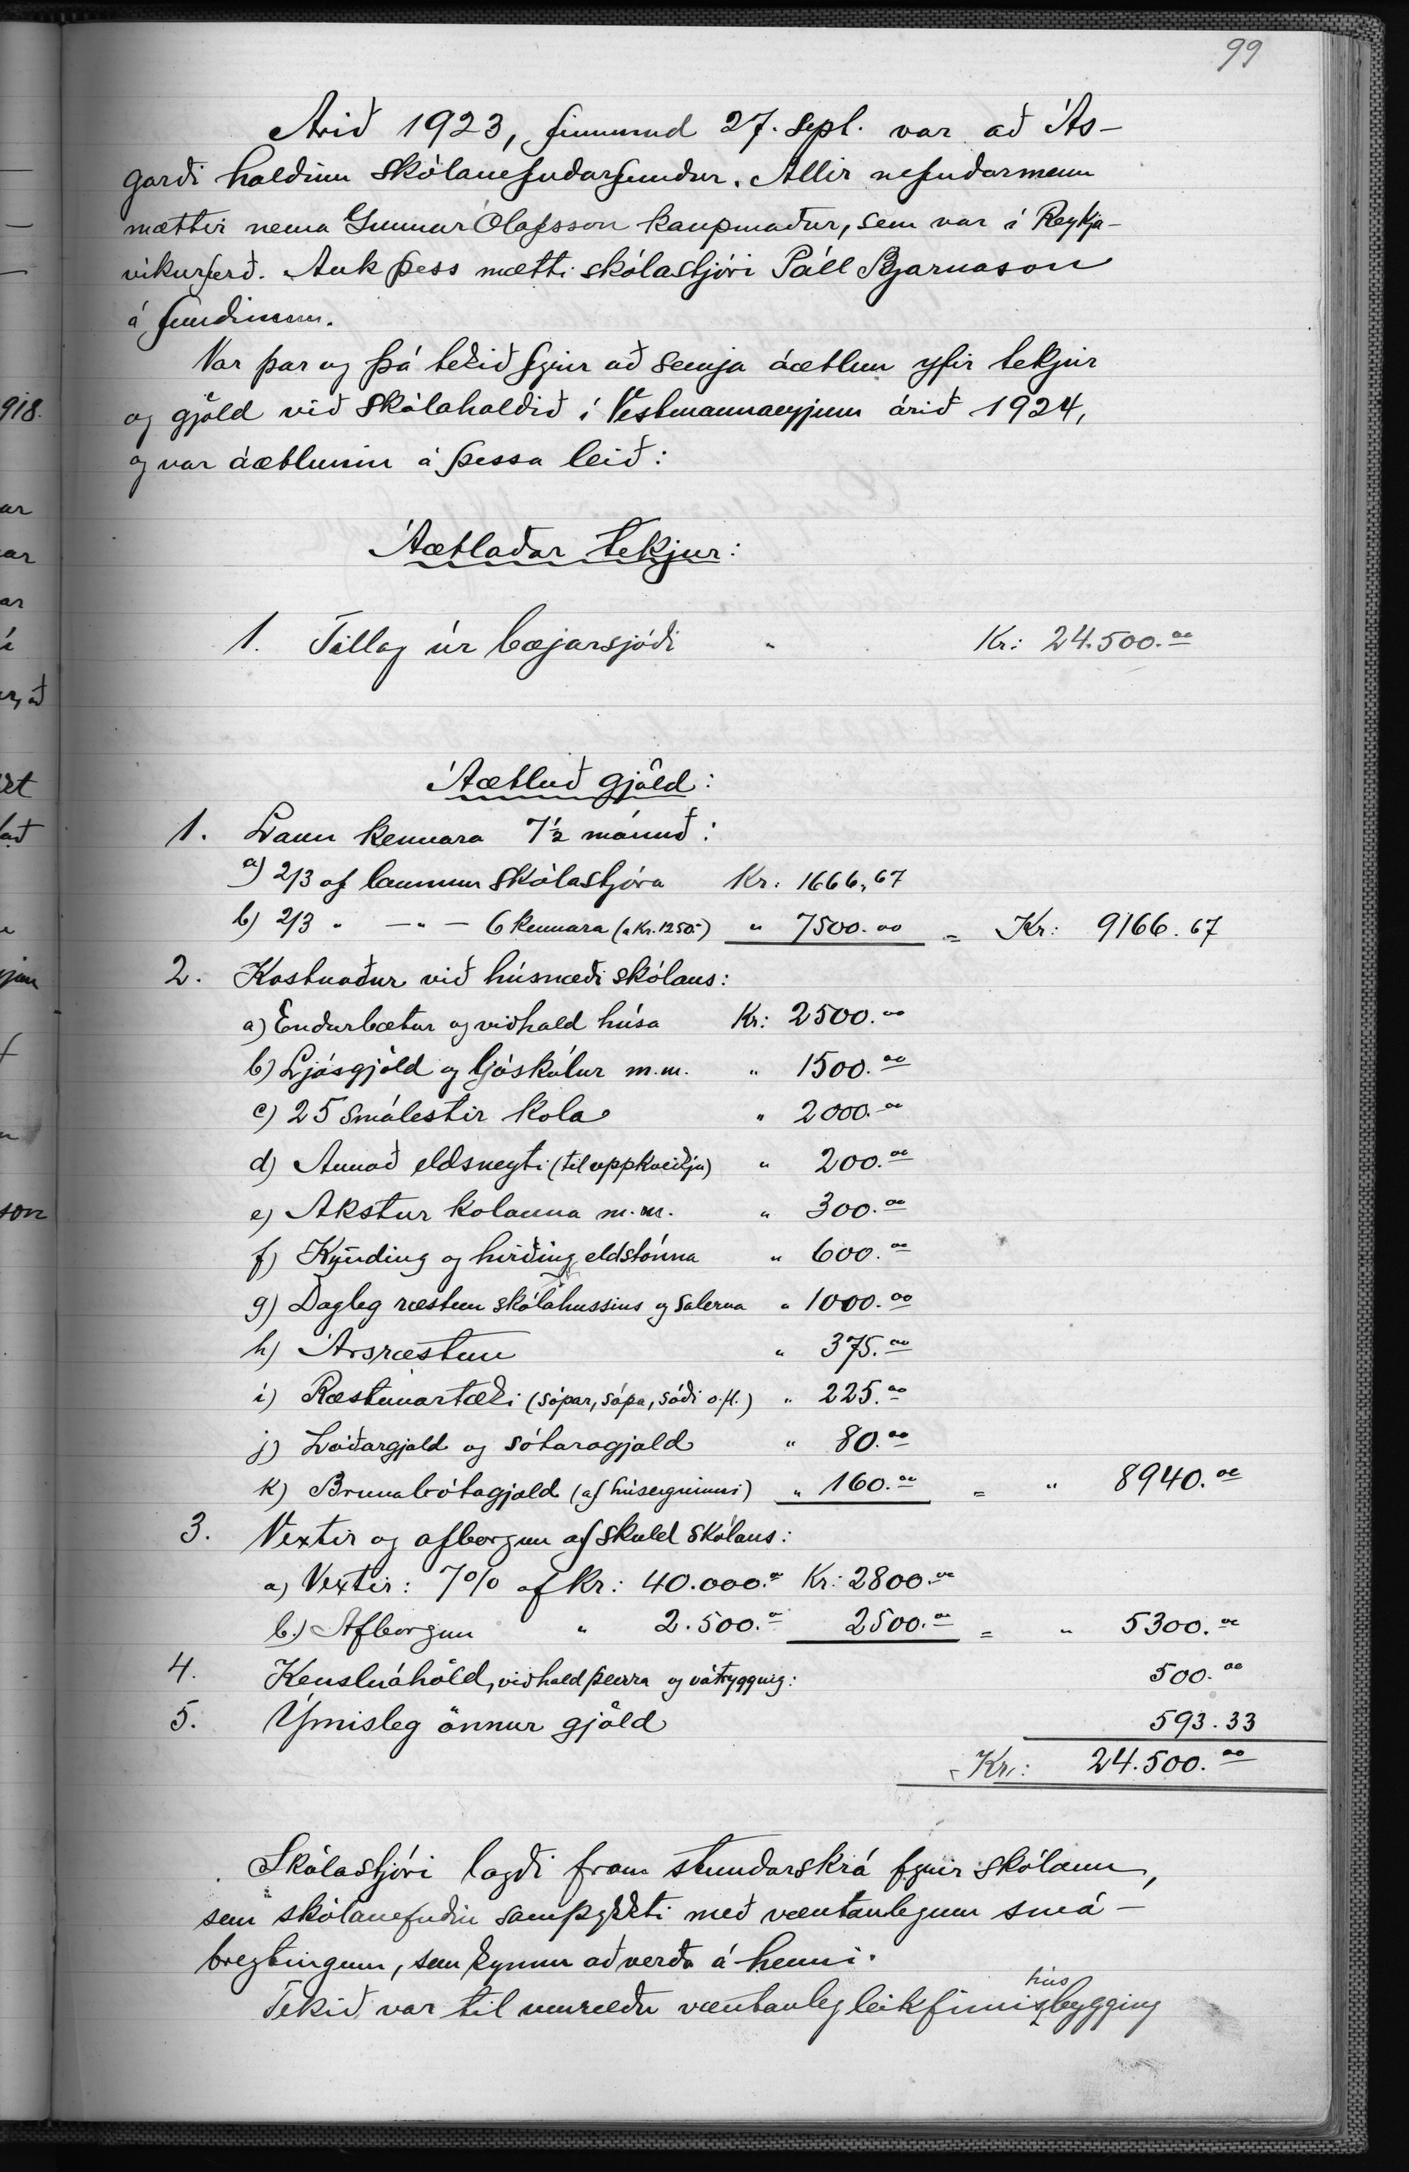 99
Árið 1923, fimmtud 27. sept. var að Ás-
garði haldinn skólanefndarfundur. Allir nefndarmenn
mættir nema Gunnar Ólafsson kaupmaður, sem var í Reykja-
víkurferð. Auk þess mætti skólastjóri Páll Bjarnason
á fundinum.
Var þar og þá tekið fyrir að semja áætlun yfir tekjur
og gjöld við skólahaldið í Vestmannaeyjum árið 1924,
og var áætlunin á þessa leið:
Áætlaðar tekjur:
1. Tillag úr bæjarsjóði " Kr: 24.500.00
Áætluð gjöld:
1. Laun kennara 7½ mánuð:
a) 2/3 af launum skólastjóra Kr: 1666.67
b) 2/3 " —"— 6 kennara (a Kr. 1250-) " 7500.00 = Kr: 9166.67
2. Kostnaður við húsnæði skólans:
a) Endurbætur og viðhald húsa Kr: 2500.00
b) Ljósgjöld og ljóskúlur m.m. " 1500.00
c) 25 smálestir kola " 2000.00
d) Annað eldsneyti (til uppkveikju) " 200.00
e) Akstur kolanna m.m. " 300.00
f) Kynding og hirðing eldstónna " 600.00
g) Dagleg ræstun skólahussins og salerna " 1000.00
h) Ársræstun " 375.00
i) Ræstunartæki (sópar, sápa, sódi o.fl.) " 225.00
j) Lóðargjald og sótaragjald " 80.00
k) Brunabótagjald (af húseigninni) " 160.00 = " 8940.00
3. Vextir og afborgun af skuld skólans:
a) Vextir: 7% af Kr: 40.000.00 Kr: 2800.00
b.) Afborgun " 2.500.00 2500.00 = " 5300.00
4. Kensluáhöld, viðhald þeirra og vátrygging: 500.00
5. Ýmisleg önnur gjöld 593.33
Kr: 24.500.00
Skólastjóri lagði fram stundarskrá fyrir skólann,
sem skólanefndin samþykkti með væntanlegum smá-
breytingum, sem kynnu að verða á henni.
Tekið var til umræðu væntanleg leikfimishúsbygging